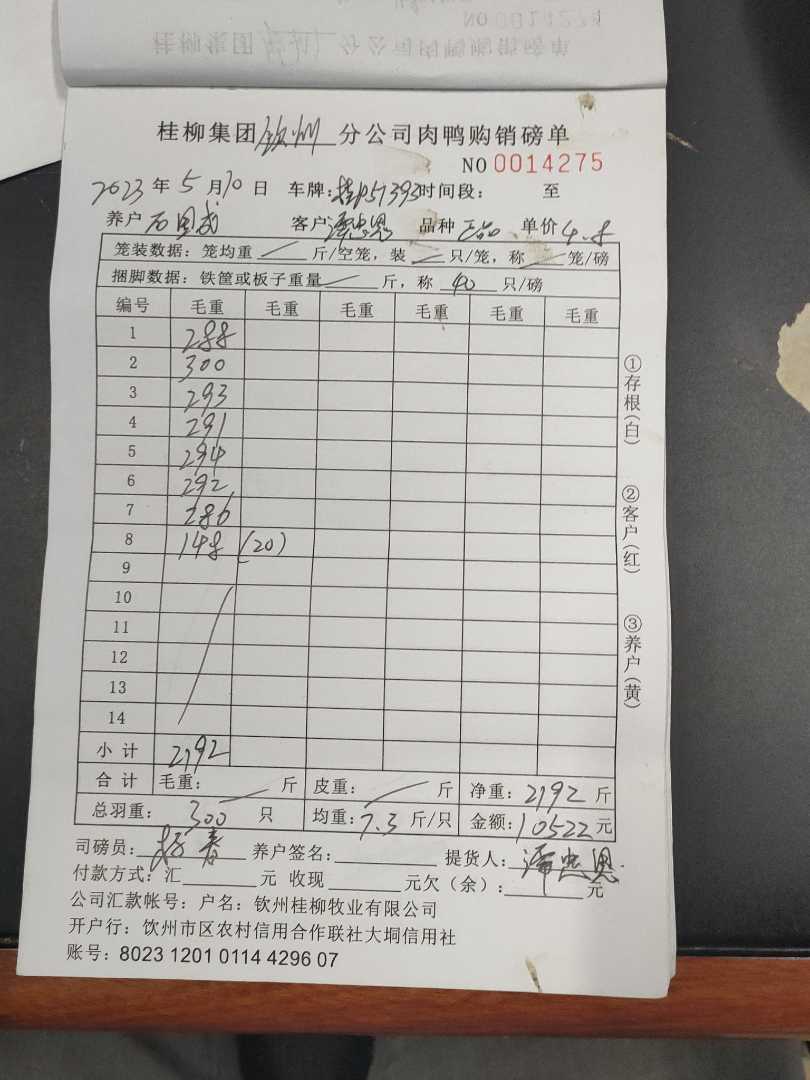 NO 0014274
桂柳集团 分公司肉鸭购销磅单
桂柳集团钦州分公司肉鸭购销磅单
NO 0014275
2023年5月10日 车牌:桂P51393时间段: 至
养户 客户谭忠恩 品种 正品 单价 4.8
笼装数据:笼均重 斤/空笼,装 只/笼,称 笼/磅
捆脚数据:铁筐或板子重量 斤,称 40 只/磅
编号 毛重 毛重 毛重 毛重 毛重 毛重
1 288
2 300
3 293
4 291
5 294
6 292
7 286
8 148 (20)
9
10
11
12
13
14
小计 2192
合计 毛重: 斤 皮重: 斤 净重: 2192 斤
总羽重: 300 只 均重: 7.3 斤/只 金额: 10522 元
司磅员: 养户签名: 提货人: 谭忠恩
付款方式:汇 元 收现 元欠(余): 元
公司汇款帐号:户名:钦州桂柳牧业有限公司
开户行:饮州市区农村信用合作联社大垌信用社
账号:8023 1201 0114 4296 07
①存根(白)
②客户(红)
③养户(黄)